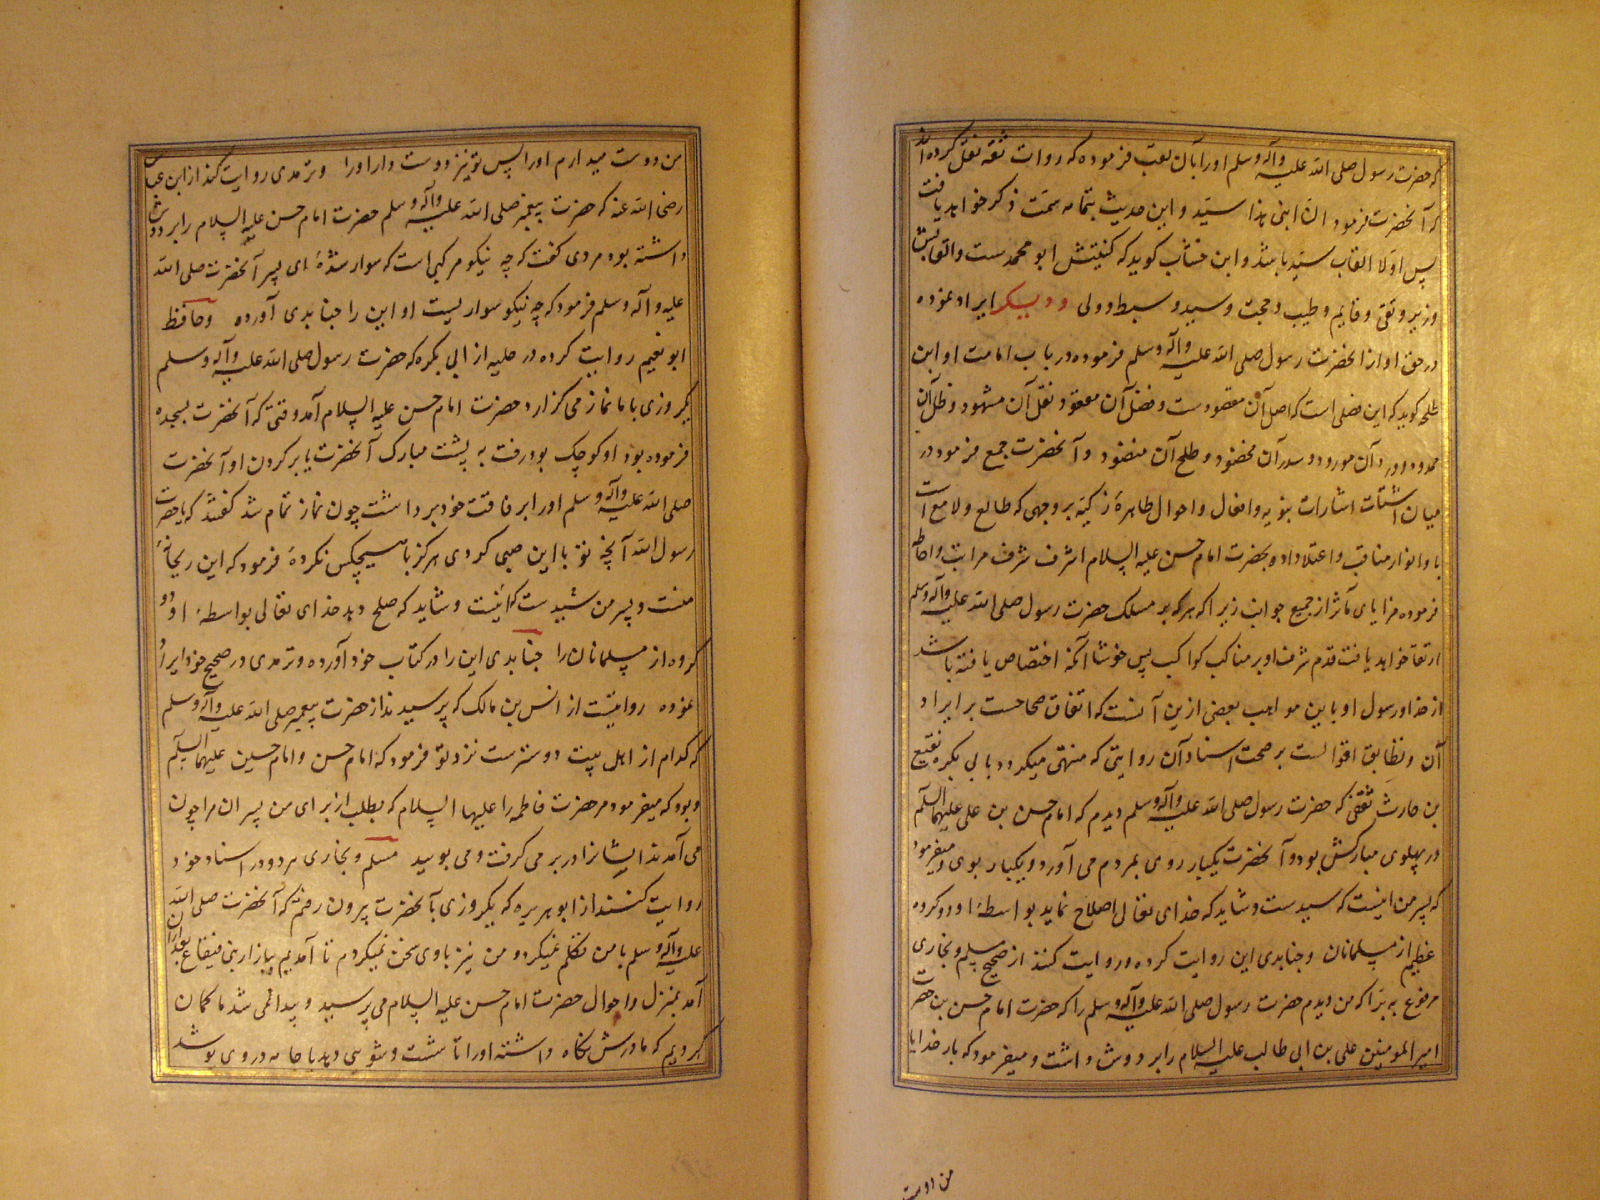 که حضرت رسول صلی الله علیه وآله وسلم او را بآن لقب فرموده که روات ثقه نقل کرده‌اند
که آنحضرت فرمود ان ابنی هذا سید و این حدیث بتمامه سمت ذکر خواهد یافت
پس اولا القاب سید باشد و ابن خشاب کوید که کنیتش ابو محمدست والقابش
وزیر و تقی و قایم و طیب و حجت و سید و سبط و ولی و دیکر ایراد نموده
در حق او از آنحضرت رسول صلی الله علیه وآله وسلم فرموده در باب امامت او ابن
طلحه کوید که این فصلی است که اصل آن مقصودست و فضل آن معقود نقل آن مشهود و ظل آن
ممدود و ورد آن مورود و سدر آن مخضود و طلح آن منضود و آنحضرت جمع فرمود در
میان اشتات اشارات نبویه وافعال واحوال طاهرهٔ زکیه بر وجهی که طالع و لامع است
باو انوار مناقب واعتلا داد بحضرت امام حسن علیه السلام اشرف شرف مراتب واحاطه
فرموده مزایای مآثر از جمیع جوانب زیرا که هر که بر مسلک حضرت رسول صلی الله علیه وآله وسلم
ارتقا خواهد یافت قدم شرف او بر مناکب کواکب پس خوشا آنکه اختصاص یافته باشد
از خدا و رسول او باین مواهب بعضی ازین آنست که اتفاق صحاحست بر ایراد
آن و تطابق اقوالست بر صحت اسناد آن روایتی که منتهی میکردد بابی بکره نفیع
بن حارث ثقفی که حضرت رسول صلی الله علیه وآله وسلم دیدم که امام حسن بن علی علیهما السلام
در پهلوی مبارکش بود و آنحضرت یکبار روی بمردم می آورد و یکبار بوی و میفرمود
که پسر من اینست که سیدست و شاید که خدای تعالی اصلاح نماید بواسطهٔ او دو کروه
عظیم از مسلمانان و جنابدی این روایت کرده و روایت کنند از صحیح مسلم و بخاری
مرفوع به برا که من دیدم حضرت رسول صلی الله علیه وآله وسلم را که حضرت امام حسن بن حضرت
امیر المومنین علی بن ابی طالب علیه السلام را بر دوش داشت و میفرمود که بار خدایا
من دوست
من دوست میدارم او را پس تو نیز دوست دار او را و ترمدی روایت کند از ابن عباس
رضی الله عنه که حضرت پیغمبر صلی الله علیه وآله وسلم حضرت امام حسن علیه السلام را بر دوش
داشته بود مردی کفت که چه نیکو مرکبی است که سوار شدهٔ ای پسر آنحضرت صلی الله
علیه وآله وسلم فرمود که چه نیکو سواریست او این را جنابدی آورده و حافظ
ابو نعیم روایت کرده در حلیه از ابی بکره که حضرت رسول صلی الله علیه وآله وسلم
یکروزی با ما نماز می کزارد حضرت امام حسن علیه السلام آمد وقتی که آنحضرت بسجده
فرموده بود او کوچک بود رفت به پشت مبارک آنحضرت یا بر کردن او آنحضرت
صلی الله علیه وآله وسلم او را برفاقت خود برداشت چون نماز تمام شد کفتند که یا حضرت
رسول الله آنچه تو با این صبی کردی هرکز با هیچکس نکردهٔ فرمود که این ریحانهٔ
منست و پسر من سیدست که اینست و شاید که صلح دهد خدای تعالی بواسطهٔ او دو
کروه از مسلمانان را جنابدی این را در کتاب خود آورده و ترمدی در صحیح خود ایراد
نموده روایتست از انس بن مالک که پرسیدند از حضرت پیغمبر صلی الله علیه وآله وسلم
که کدام از اهل بیت دوسترست نزد تو فرمود که امام حسن و امام حسین علیهما السلام
و بود که میفرمود مر حضرت فاطمه را علیها السلام که بطلب از برای من پسران مرا چون
می آمدند ایشانرا در بر می کرفت و می بویید مسلم و بخاری هر دو در اسناد خود
روایت کنند از ابو هریره که یکروزی بآنحضرت بیرون رفتم که آنحضرت صلی الله
علیه وآله وسلم با من تکلم نمیکرد و من نیز با وی سخن نمیکردم تا آمدیم ببازار بنی قینقاع بعد از ان
آمد بمنزل و احوال حضرت امام حسن علیه السلام می پرسید و پیدا نمی شد ما کمان
کردیم که مادرش نکاه داشته او را تا شست و شوی دهد یا جامه در وی پوشد